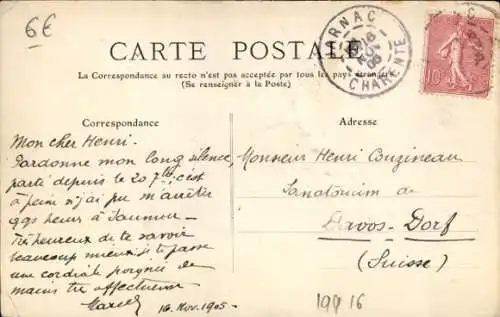 6€
CARTE POSTALE
La Correspondance au recto n'est pas acceptée par tous les pays étrangers
(Se renseigner à la Poste)
JARNAC
CHARENTE
10
Correspondance
Mon cher Henri.
Pardonne mon long silence,
parti depuis le 20 7bre c'est
à peine si j'ai pu m'arrêter
qqs heures à Saumur
Très heureux de te savoir
beaucoup mieux je te passe
une cordiale poignée de
mains très affectueuse
Marcel
16. Nov. 1905
Adresse
Monsieur Henri Couzineau
Sanatorium de
Davos-Dorf
(Suisse)
199 16